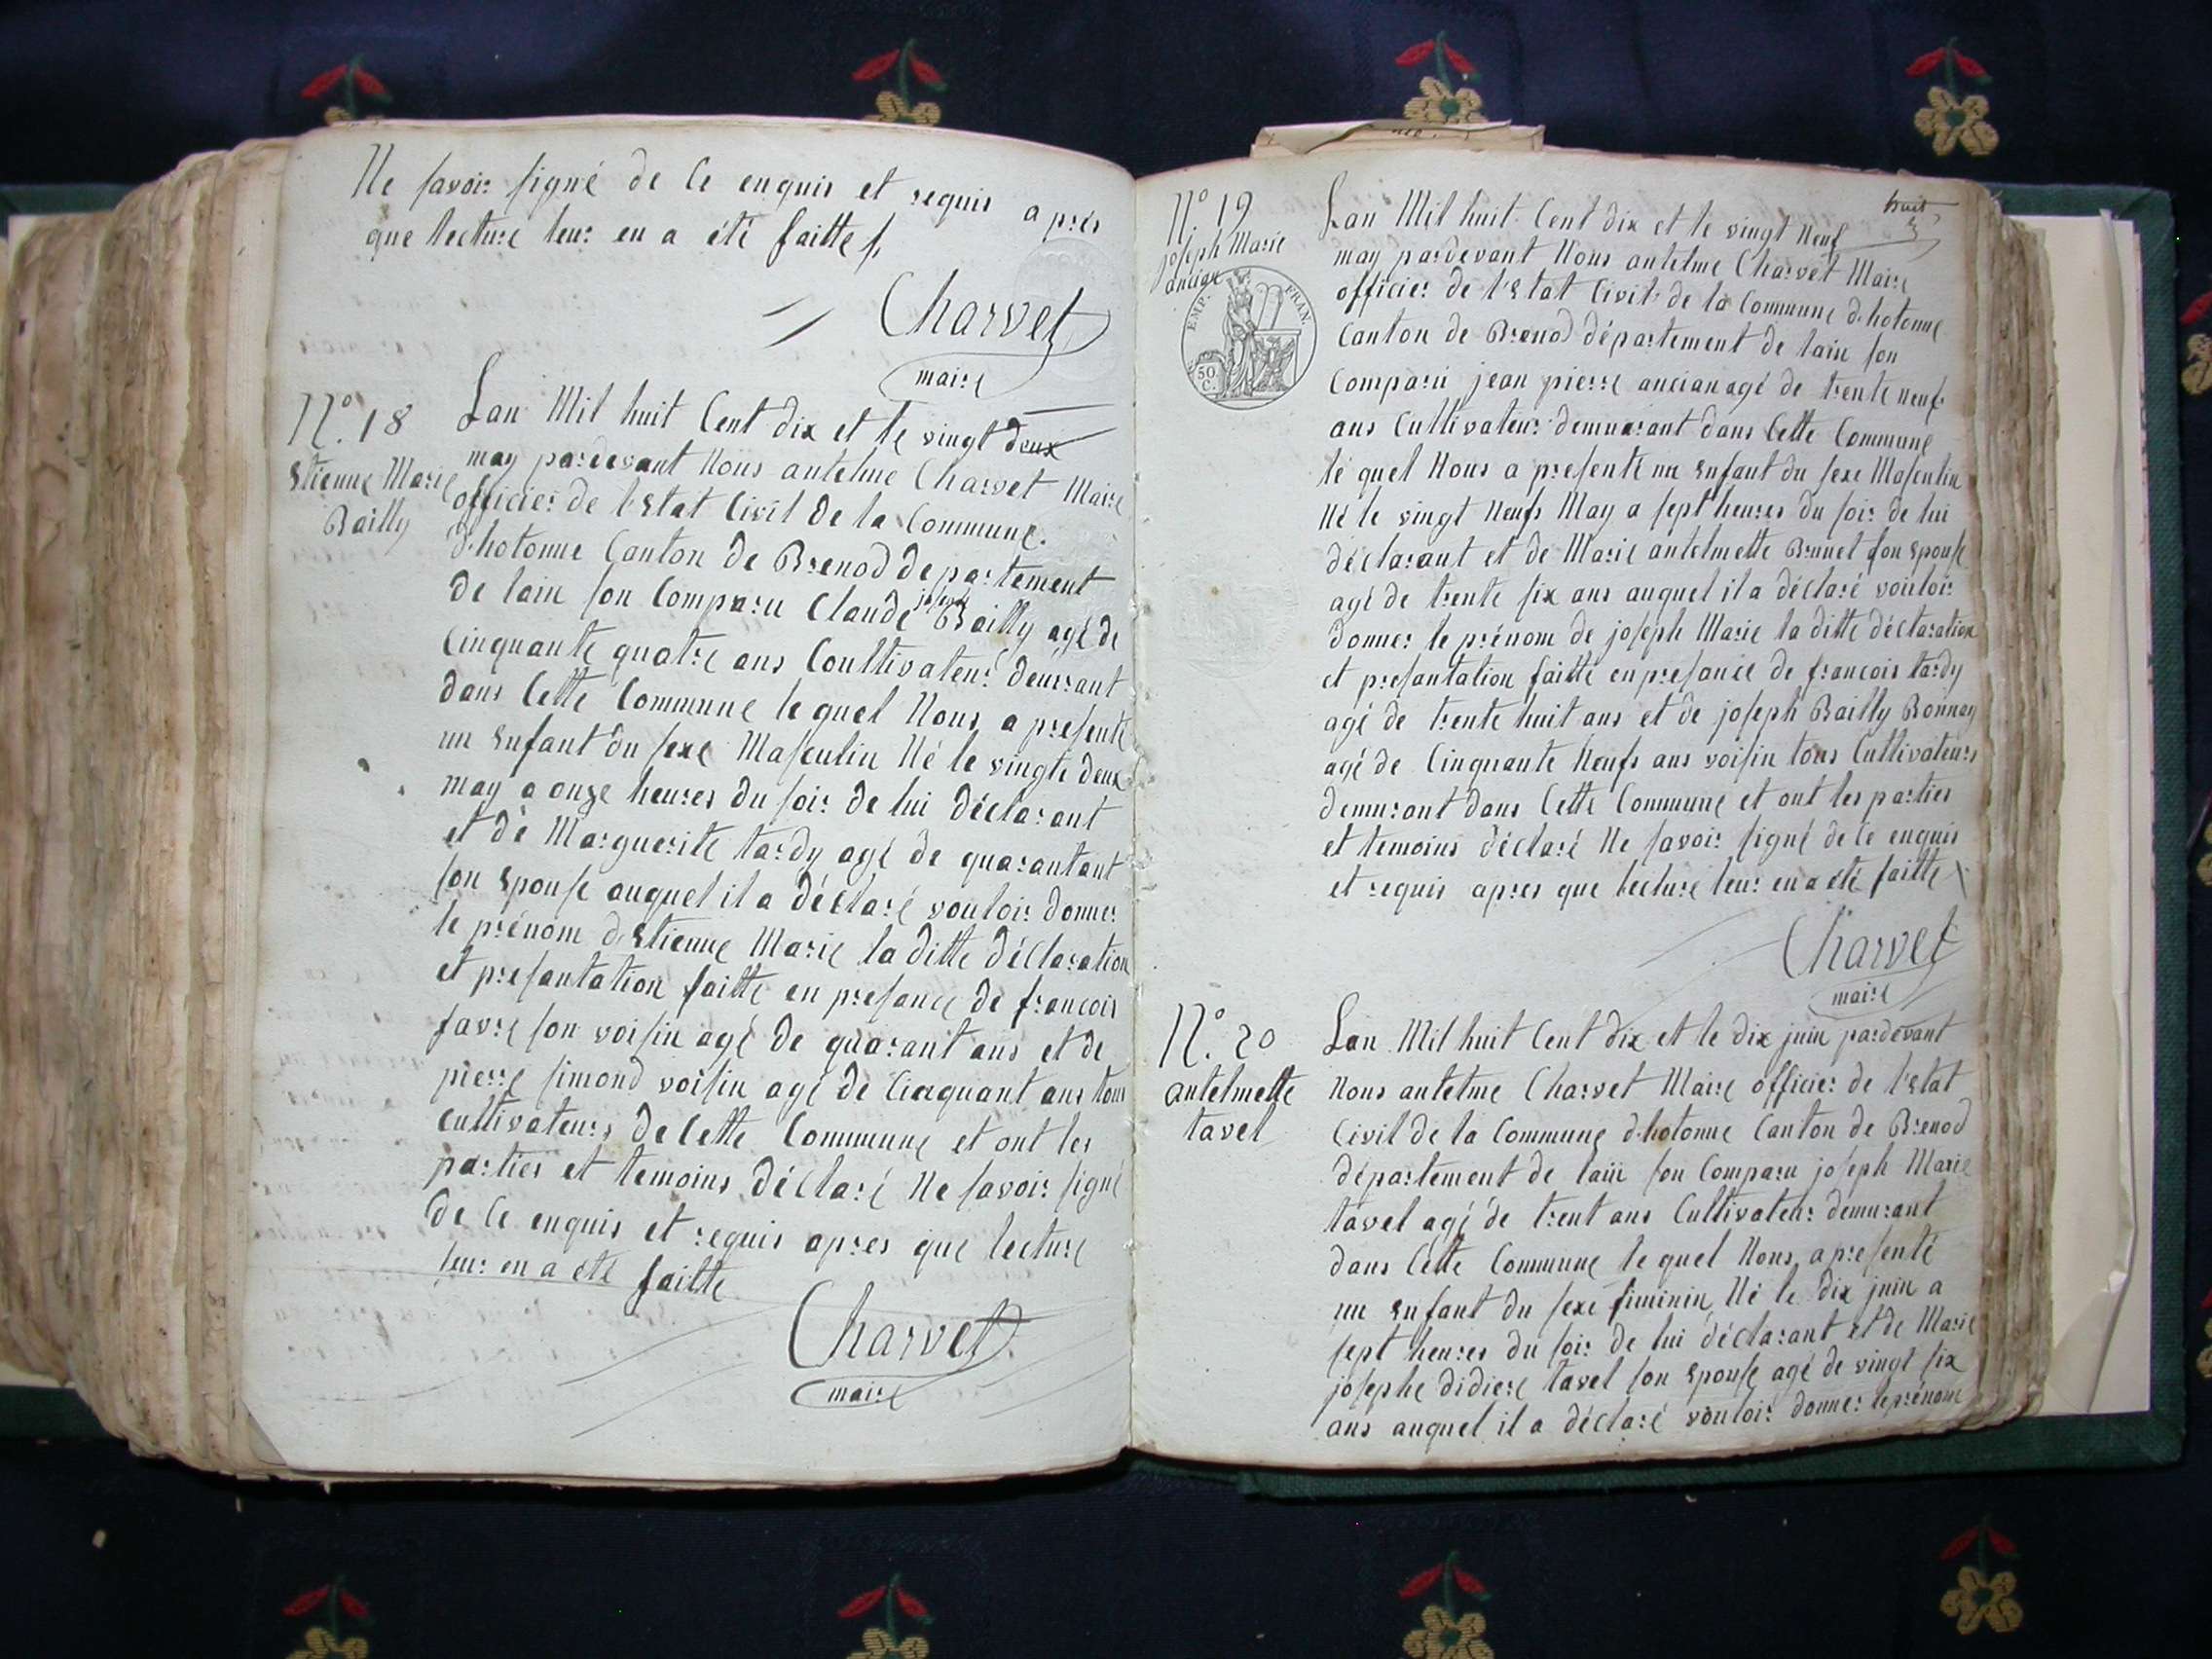 Ne savoir signé de Ce enquis et requis apres
que lecture leur en a été faitte
Charvet
maire
N.° 18
Estienne Marie
Bailly
Lan Mil huit Cent dix et le vingt deux
may pardevant Nous antelme Charvet Maire
officier de lEstat Civil de la Commune
d'hotonne Canton de Brenod departement
de lain son Comparu Claude joseph Bailly agé de
Cinquante quatre ans Coultivateur deurrant
dans Cette Commune le quel Nous a presenté
un Enfant du sexe Masculin Né le vingte deux
may a onze heures du soir de lui déclarant
et de Marguerite tardy agé de quarantant
son Epouse auquel il a déclaré vouloir donner
le prénom dEstienne Marie la ditte déclaration
et presantation faitte en presance de francois
favre son voisin agé de quarant ans et de
pierre simond voisin agé de Cinquant ans tous
cultivateurs de Cette Commune et ont les
parties et temoins déclaré Ne savoir signé
de Ce enquis et requis apres que lecture
leur en a été faitte
Charvet
maire
huit
N.° 19
joseph Marie
ancian
EMP. FRAN.
50 C.
Lan Mil huit Cent dix et le vingt Neuf
may pardevant Nous antelme Charvet Maire
officier de l'Estat Civil de la Commune d'hotonne
Canton de Brenod département de lain son
Comparu jean pierre ancian agé de trente neuf
ans Cultivateur demurant dans Cette Commune
le quel Nous a presenté un Enfant du sexe Masculin
Né le vingt Neufs May a sept heures du soir de lui
déclarant et de Marie antelmette Brunet son Epouse
agé de trente six ans auquel il a déclaré vouloir
donner le prénom de joseph Marie la ditte déclaration
et presantation faitte en presance de francois tardy
agé de trente huit ans et de joseph Bailly Bonnay
agé de Cinquante Neufs ans voisin tous Cultivateurs
demurant dans Cette Commune et ont les parties
et temoins déclaré Ne savoir signé de Ce enquis
et requis apres que lecture leur en a été faitte
Charvet
maire
N.° 20
antelmette
tavel
Lan Mil huit Cent dix et le dix juin pardevant
Nous antelme Charvet Maire officier de l'Estat
Civil de la Commune d'hotonne Canton de Brenod
département de lain son Comparu joseph Marie
tavel agé de trent ans Cultivateur demurant
dans Cette Commune le quel Nous a presenté
un Enfant du sexe fiminin Né le dix juin a
sept heures du soir de lui déclarant et de Marie
josephe didiere tavel son Epouse agé de vingt six
ans auquel il a déclaré vouloir donner le prénom